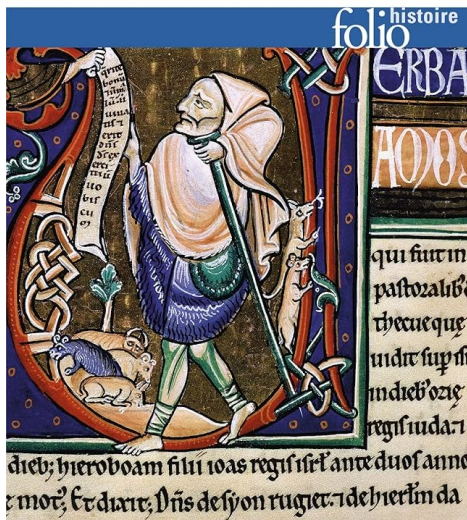 folio histoire
ERBA
AMOS
bonũ
uiua
tis ⁊
erit
dñs
uo
bis
cũ
qui fuit in
pastoralib'
thecue que
uidit sup̱ is
in dieb' ozie
regis iuda ⁊
dieb; hieroboam filii ioas regis isrł ante duos anno
mot'; Et dixit; Dñs de syon rugiet. ⁊ de hierłm da